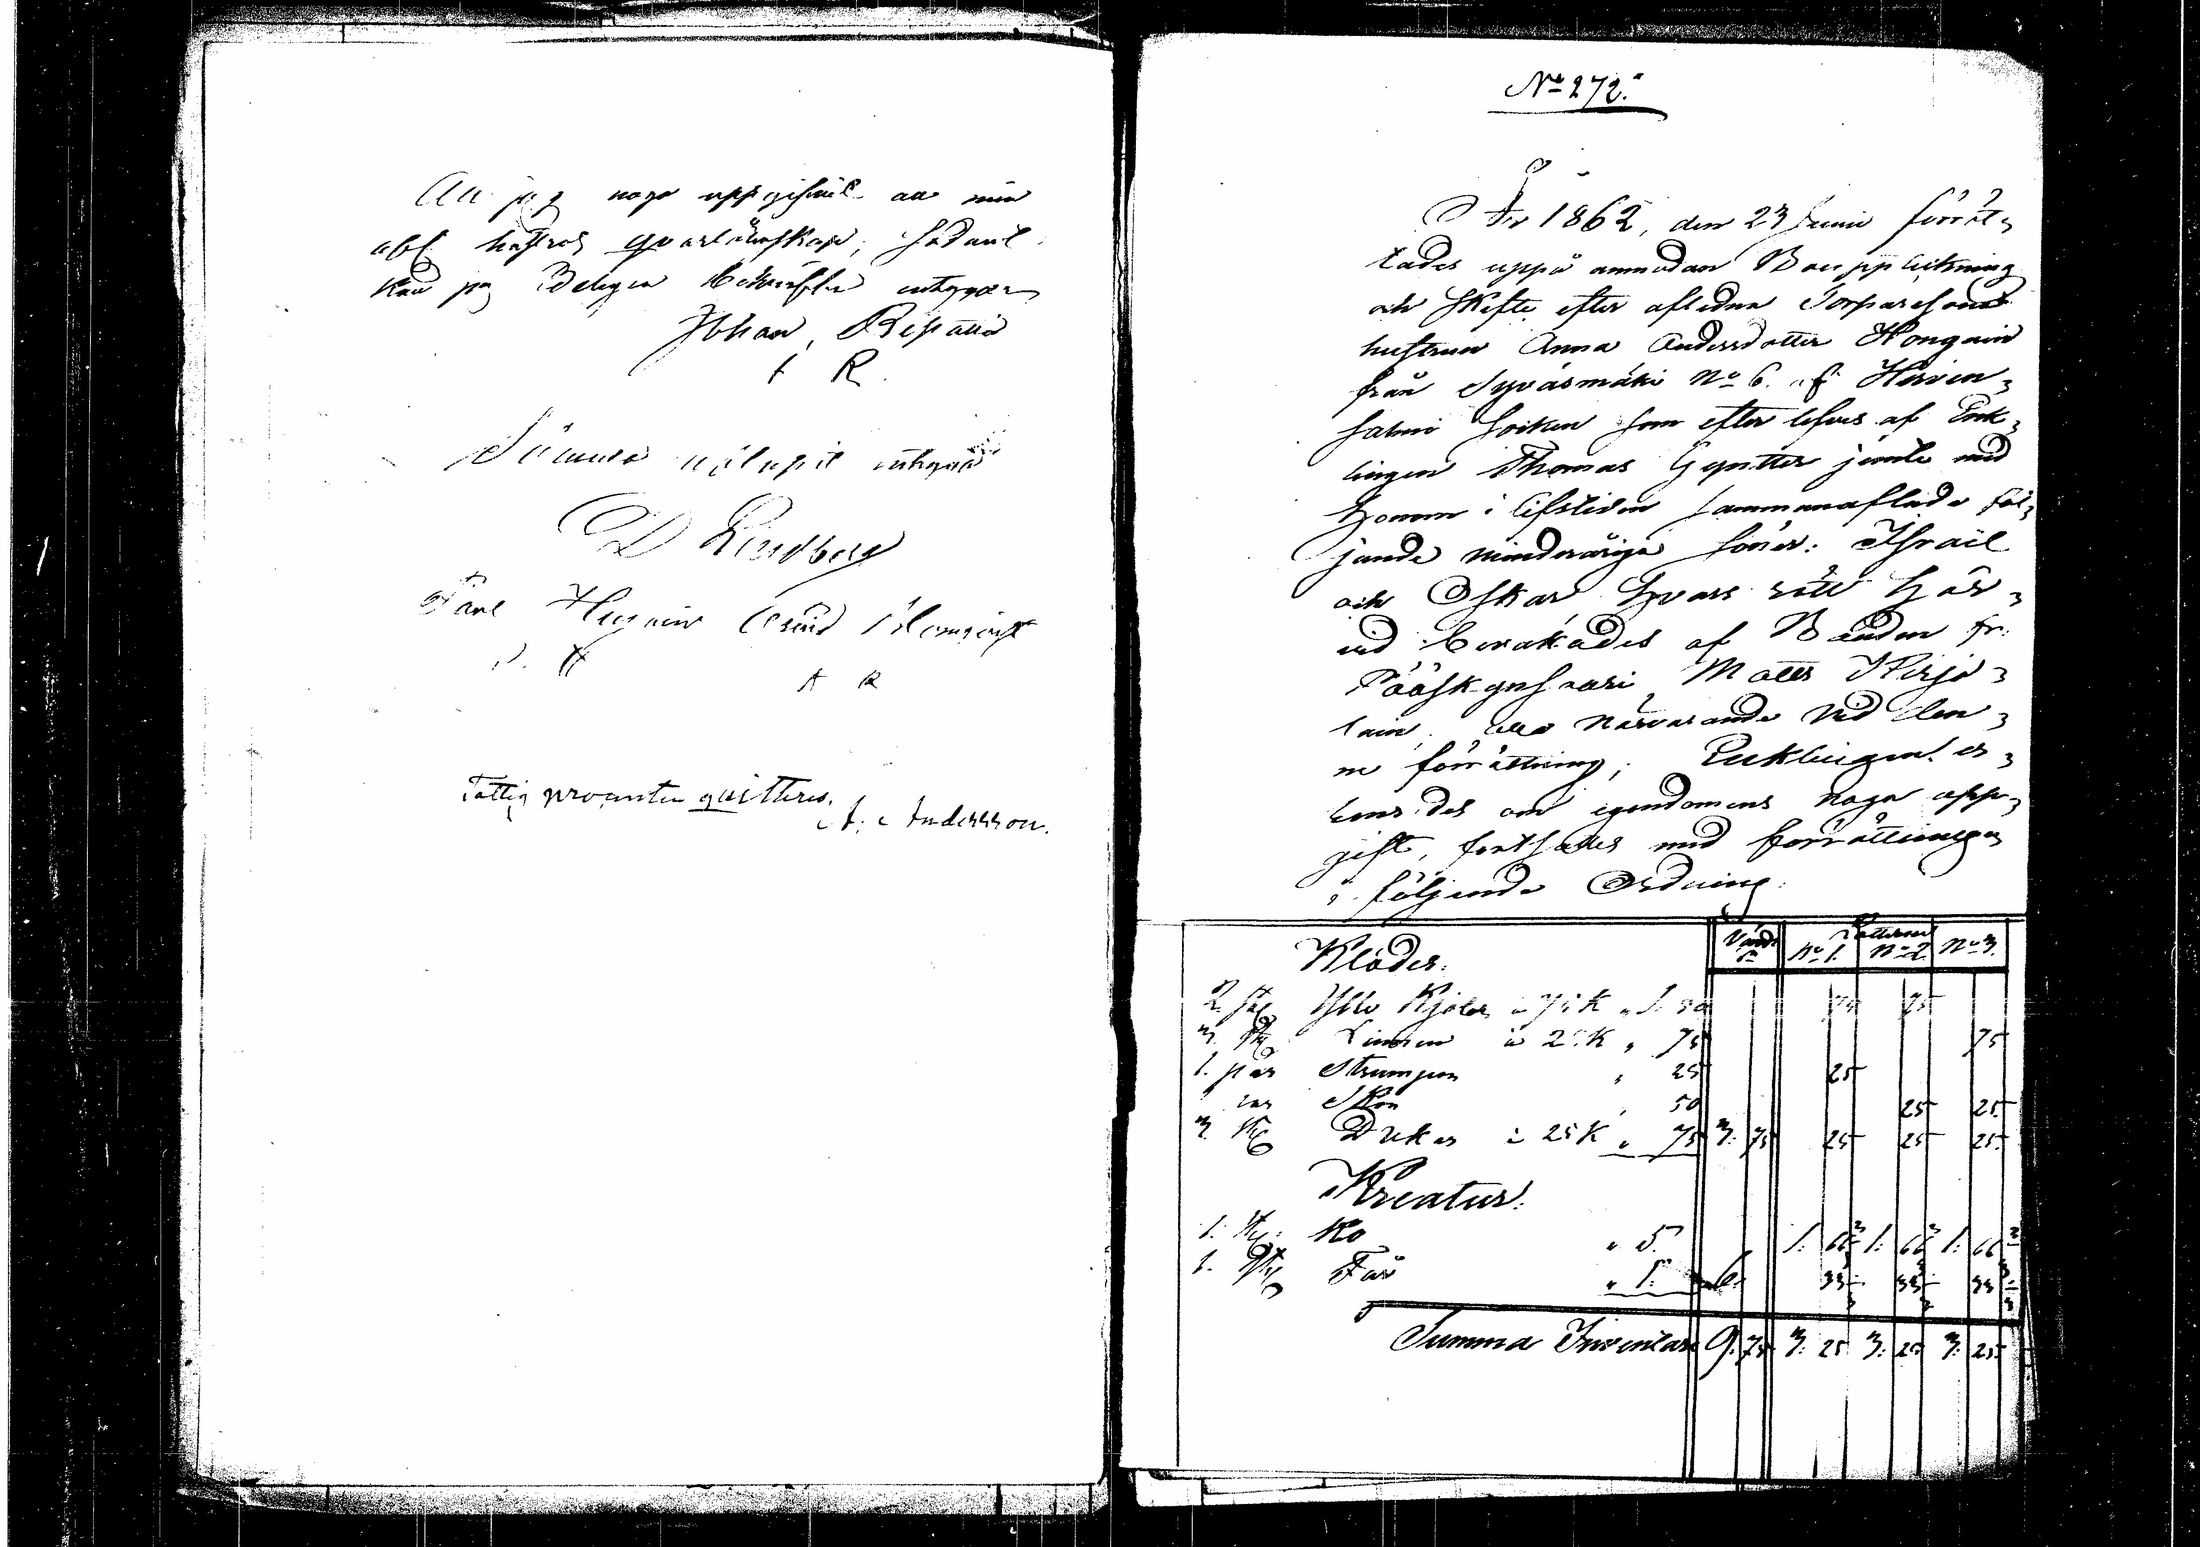 At jag noga uppgifvit all min
all hustros qvarlåtenskap, sådant
kan jag Edelgen bekräfta intygar
Johan Repaiii
I R
D Lindberg
Paul Huguin
P. H
A R
Fattig procenten quitteras.
A. Andersson.
No 272.
År 1862, den 23 Junii förrät-
tades uppå anmodan Bouppteckning
och skifte efter aflidna Torparesons
hustrun Anna Andersdotter Hongain
från Syväsmäki No 6. af Hirven-
salmi Socken som efter lefves af Enk-
lingen Thomas Gynther jämte med
honom i lifstiden sammanaflade föl-
jande minderåriga söner: Israel
och Oskar hvars rätt här-
vid bevakades af Bonden fr:
Pääskynsaari Matts Kirjo-
lain, alla närvarande vid den-
ne förrättning; Enklingen er-
hinrades om egendomens noga upp-
gift, fortsattes med förrättningen
i följande Ordning.
Värde Lotterna
No 1. No 2. No 3.
Kläder.
2 st Kjolar à 75 K " 1. 50 75 75
3. st Linnen à 25 K " 75 75
1. par Strumpor " 25 25
par Skor " 50 25 25
3. st Dukar à 25 K " 75 3. 75 25 25 25
Kreatur.
1. st Ko " 5. 1. 66 2/3 1. 66 2/3 1. 66 2/3
1. st Får " 1. 6. 33 1/3 33 1/3 33 1/3
Summa Inventari 9. 75 3. 25 3. 25 3. 25